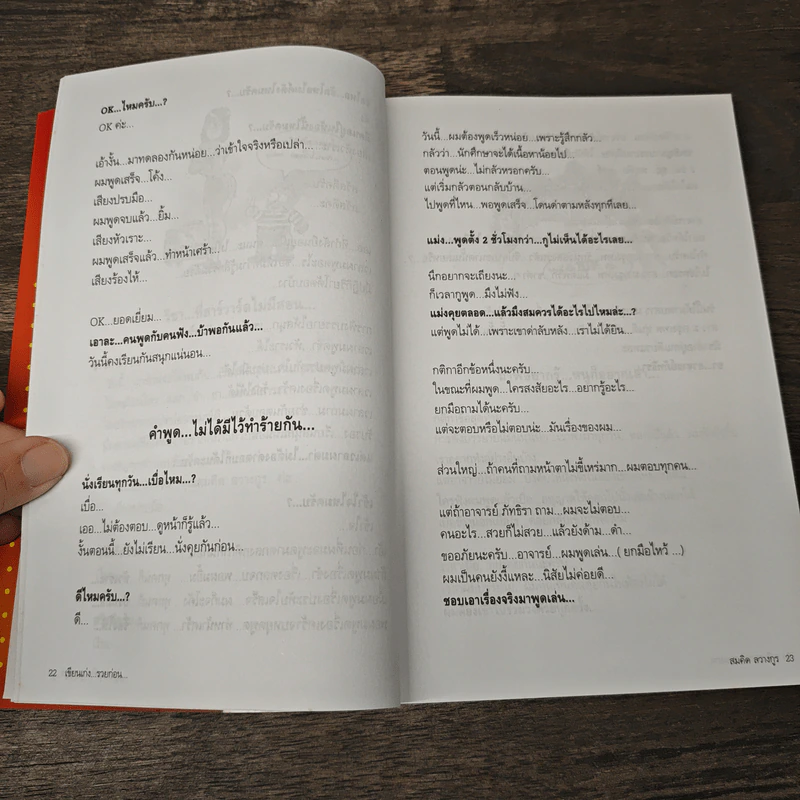 OK...ไหมครับ...?
OK ค่ะ...
เอ้างั้น...มาทดลองกันหน่อย...ว่าเข้าใจจริงหรือเปล่า...
ผมพูดเสร็จ...โค้ง...
เสียงปรบมือ...
ผมพูดจบแล้ว...ยิ้ม...
เสียงหัวเราะ...
ผมพูดเสร็จแล้ว...ทำหน้าเศร้า...
เสียงร้องไห้...
OK...ยอดเยี่ยม...
เอาละ...คนพูดกับคนฟัง...บ้าพอกันแล้ว...
วันนี้คงเรียนกันสนุกแน่นอน...
คำพูด...ไม่ได้มีไว้ทำร้ายกัน...
นั่งเรียนทุกวัน...เบื่อไหม...?
เบื่อ...
เออ...ไม่ต้องตอบ...ดูหน้าก็รู้แล้ว...
งั้นตอนนี้...ยังไม่เรียน...นั่งคุยกันก่อน...
ดีไหมครับ...?
ดี...
22 เขียนเก่ง...รวยก่อน...
วันนี้...ผมต้องพูดเร็วหน่อย...เพราะรู้สึกกลัว...
กลัวว่า...นักศึกษาจะได้เนื้อหาน้อยไป...
ตอนพูดน่ะ...ไม่กลัวหรอกครับ...
แต่เริ่มกลัวตอนกลับบ้าน...
ไปพูดที่ไหน...พอพูดเสร็จ...โดนด่าตามหลังทุกทีเลย...
แม่ง...พูดตั้ง 2 ชั่วโมงกว่า...กูไม่เห็นได้อะไรเลย...
นึกอยากจะเถียงนะ...
ก็เวลากูพูด...มึงไม่ฟัง...
แม่งคุยตลอด...แล้วมึงสมควรได้อะไรไปไหมล่ะ...?
แต่พูดไม่ได้...เพราะเขาด่าลับหลัง...เราไม่ได้ยิน...
กติกาอีกข้อหนึ่งนะครับ...
ในขณะที่ผมพูด...ใครสงสัยอะไร...อยากรู้อะไร...
ยกมือถามได้นะครับ...
แต่จะตอบหรือไม่ตอบน่ะ...มันเรื่องของผม...
ส่วนใหญ่...ถ้าคนที่ถามหน้าตาไม่ขี้เหร่มาก...ผมตอบทุกคน...
แต่ถ้าอาจารย์ ภัทธิรา ถาม...ผมจะไม่ตอบ...
คนอะไร...สวยก็ไม่สวย...แล้วยังด้าม...ดำ...
ขออภัยนะครับ...อาจารย์...ผมพูดเล่น...( ยกมือไหว้ ...)
ผมเป็นคนยังงี้แหละ...นิสัยไม่ค่อยดี...
ชอบเอาเรื่องจริงมาพูดเล่น...
สมคิด ลวางกูร 23